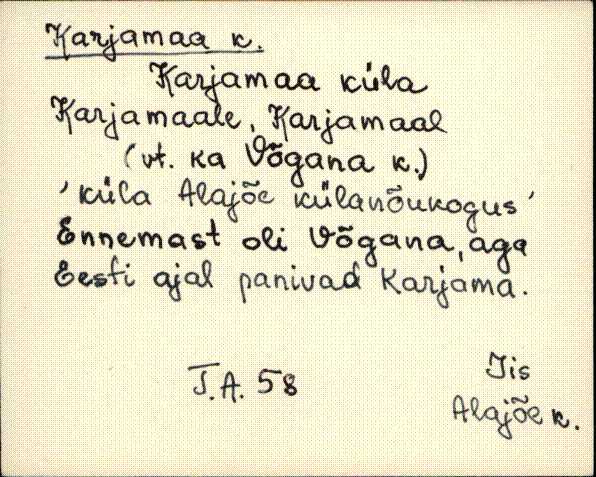 Karjamaa k.
Karjamaa küla
Karjamaale, Karjamaal
(vt. ka Võgana k.)
'küla Alajõe külanõukogus'
Ennemast oli Võgana, aga
Eesti ajal panivad Karjama.
J.A. 58
Iis
Alajõe k.